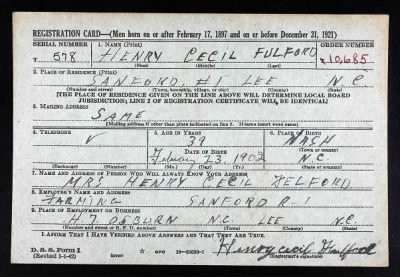 REGISTRATION CARD—(Men born on or after February 17, 1897 and on or before December 31, 1921)
SERIAL NUMBER 1. NAME (Print) ORDER NUMBER
T 578 HENRY CECIL FULFORD T 10,685
(First) (Middle) (Last)
2. PLACE OF RESIDENCE (Print)
SANFORD, #1 LEE N.C
(Number and street) (Town, township, village, or city) (County) (State)
[THE PLACE OF RESIDENCE GIVEN ON THE LINE ABOVE WILL DETERMINE LOCAL BOARD
JURISDICTION; LINE 2 OF REGISTRATION CERTIFICATE WILL BE IDENTICAL]
3. MAILING ADDRESS
SAME
[Mailing address if other than place indicated on line 2. If same insert word same]
4. TELEPHONE 5. AGE IN YEARS 6. PLACE OF BIRTH
39 NASH
DATE OF BIRTH (Town or county)
23, 1902 N.C.
(Exchange) (Number) (Mo.) (Day) (Yr.) (State or country)
7. NAME AND ADDRESS OF PERSON WHO WILL ALWAYS KNOW YOUR ADDRESS
MRS HENRY CECIL FELFORD
8. EMPLOYER'S NAME AND ADDRESS
FARMING SANFORD R.1
9. PLACE OF EMPLOYMENT OR BUSINESS
H.T. OSBURN N.C. LEE N.C.
(Number and street or R. F. D. number) (Town) (County) (State)
I AFFIRM THAT I HAVE VERIFIED ABOVE ANSWERS AND THAT THEY ARE TRUE.
D. S. S. Form 1 Henry Cecil Fulford
(Revised 1-1-42) (over) (Registrant's signature)